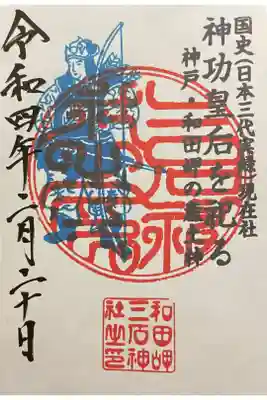 国史(日本三代實録)現在社
神功皇石を祀る
神戸・和田岬の産土神
令和四年二月二十日
和田岬
三石神
社之印